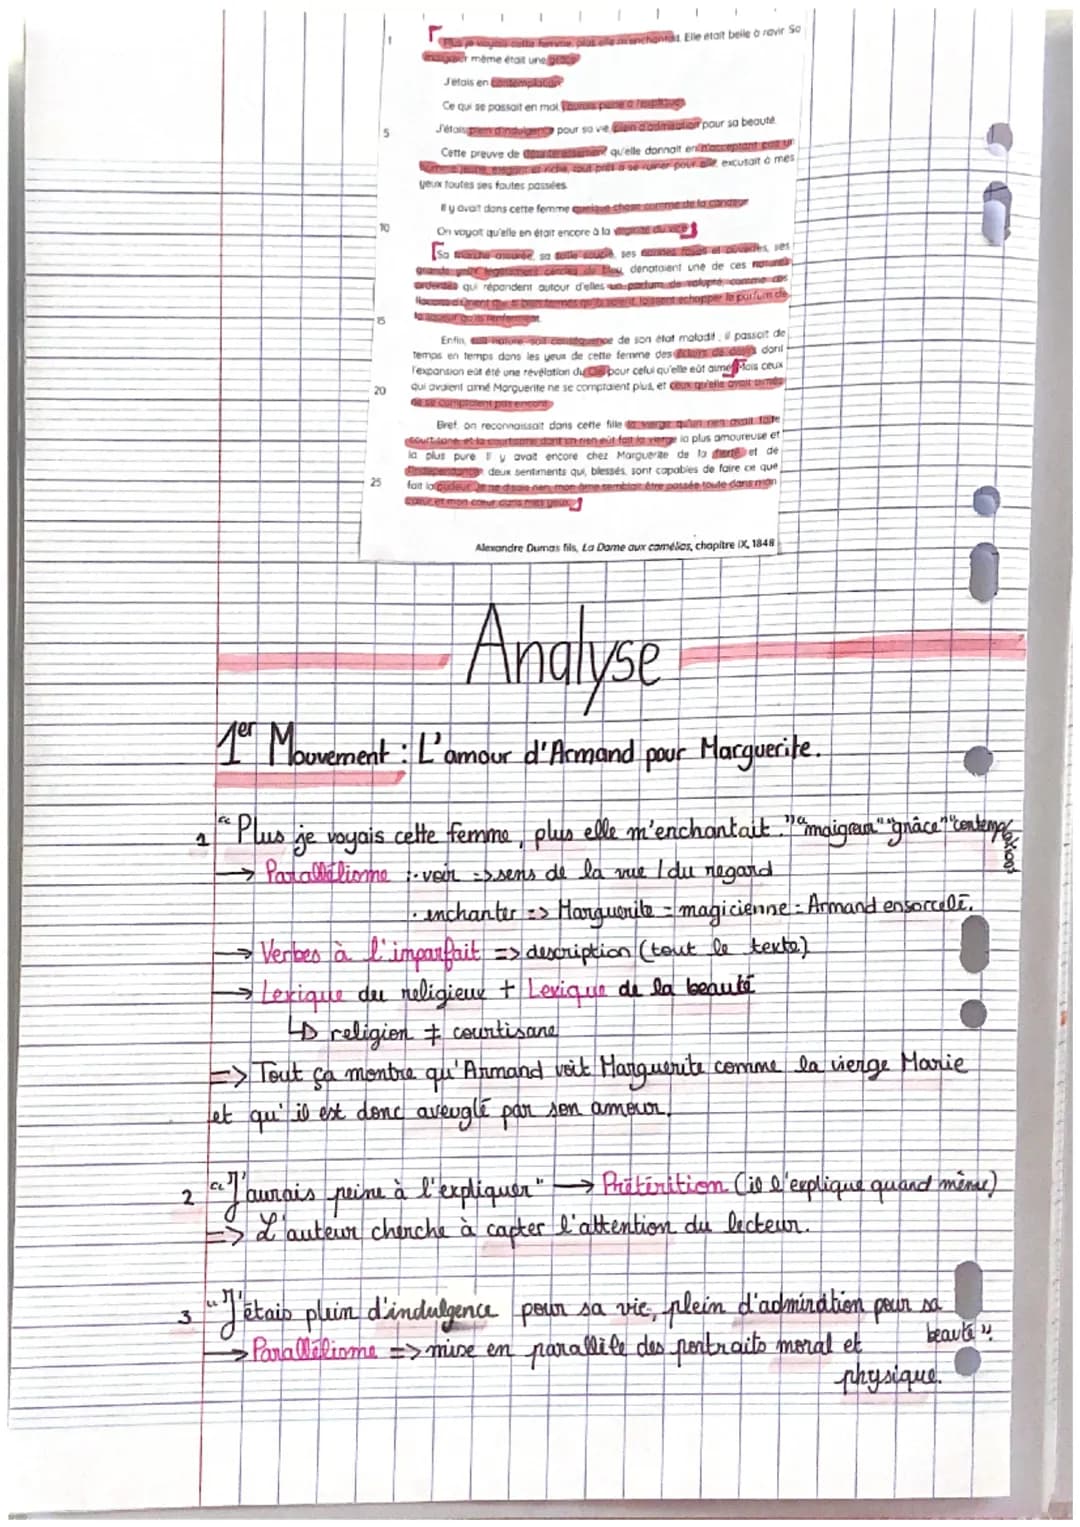 1 Plus je voyais cette femme, plus elle m'enchantait. Elle était belle à ravir. Sa
maigreur même était une grâce
J'étais en contemplation
Ce qui se passait en moi, j'aurais peine à l'expliquer
5 J'étais plein d'indulgence pour sa vie, plein d'admiration pour sa beauté.
Cette preuve de désintéressement qu'elle donnait en n'acceptant pas un
homme jeune, élégant et riche, tout prêt à se ruiner pour elle, excusait à mes
yeux toutes ses fautes passées.
Il y avait dans cette femme quelque chose comme de la candeur
10 On voyait qu'elle en était encore à la virginité du vice
Sa marche assurée, sa taille souple, ses narines roses et ouvertes, ses
grands yeux légèrement cerclés de bleu, dénotaient une de ces natures
ardentes qui répandent autour d'elles un parfum de volupté, comme ces
flacons d'Orient qui, si bien fermés qu'ils soient, laissent échapper le parfum de
15 la liqueur qu'ils renferment.
Enfin, soit nature, soit conséquence de son état maladif, il passait de
temps en temps dans les yeux de cette femme des éclairs de désirs dont
l'expansion eût été une révélation du Ciel pour celui qu'elle eût aimé. Mais ceux
20 qui avaient aimé Marguerite ne se comptaient plus, et ceux qu'elle avait aimés
ne se comptaient pas encore
Bref, on reconnaissait dans cette fille la vierge qu'un rien avait faite
courtisane, et la courtisane dont un rien eût fait la vierge la plus amoureuse et
la plus pure. Il y avait encore chez Marguerite de la fierté et de
l'indépendance deux sentiments qui, blessés, sont capables de faire ce que
25 fait la pudeur. Je ne disais rien, mon âme semblait être passée toute dans mon
cœur et mon cœur dans mes yeux.
Alexandre Dumas fils, La Dame aux camélias, chapitre IX, 1848
Analyse
1er Mouvement : L'amour d'Armand pour Marguerite.
1 "Plus je voyais cette femme, plus elle m'enchantait." "maigreur" "grâce" "contemplation"
→ Parallélisme : · voir => sens de la vue / du regard
· enchanter => Marguerite = magicienne = Armand ensorcelé.
→ Verbes à l'imparfait => description (tout le texte)
→ Lexique du religieux + Lexique de la beauté
↳ religion ≠ courtisane
=> Tout ça montre qu'Armand voit Marguerite comme la vierge Marie
et qu'il est donc aveuglé par son amour.
2 "J'aurais peine à l'expliquer" → Prétérition (il l'explique quand même)
=> L'auteur cherche à capter l'attention du lecteur.
3 "J'étais plein d'indulgence pour sa vie, plein d'admiration pour sa
beauté".
→ Parallélisme => mise en parallèle des portraits moral et
physique.